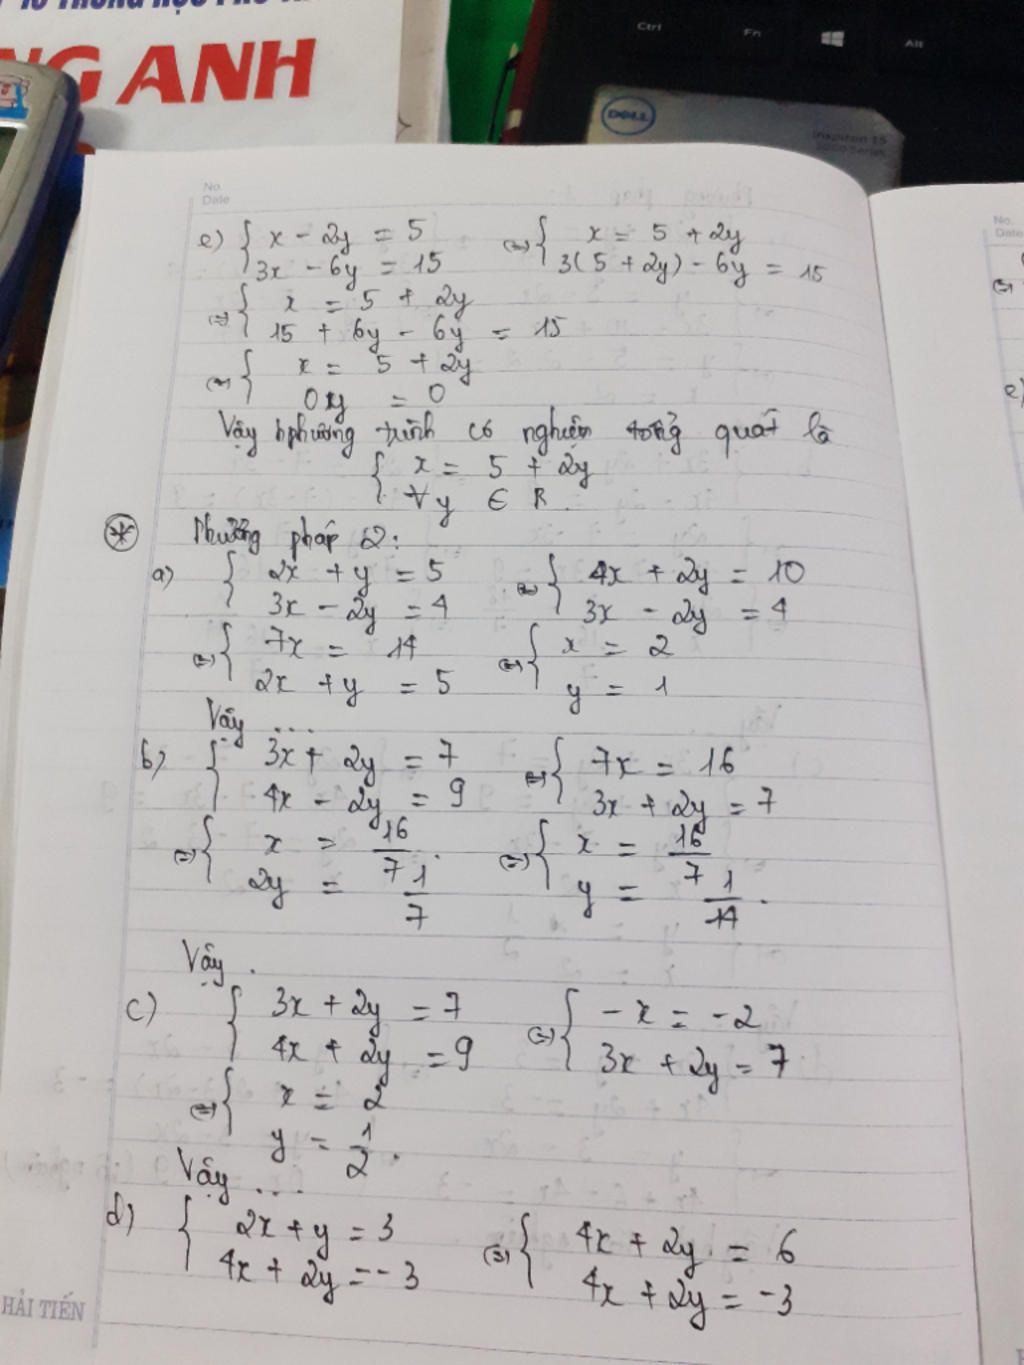 NG ANH
Ctrl Fn Alt
DELL
Inspiron 15
No.
Date
e) { x - 2y = 5 (=) { x = 5 + 2y
3x - 6y = 15 3(5 + 2y) - 6y = 15
(=) { x = 5 + 2y
15 + 6y - 6y = 15
(=) { x = 5 + 2y
0y = 0
Vậy hphương trình có nghiệm tổng quát là
{ x = 5 + 2y
∀y ∈ R.
(*) Phương pháp 2:
a) { 2x + y = 5 (=) { 4x + 2y = 10
3x - 2y = 4 3x - 2y = 4
(=) { 7x = 14 (=) { x = 2
2x + y = 5 y = 1
Vậy ...
b) { 3x + 2y = 7 (=) { 7x = 16
4x - 2y = 9 3x + 2y = 7
(=) { x = 16/7 (=) { x = 16/7
2y = 1/7 y = 1/14.
Vậy .
c) { 3x + 2y = 7 (=) { -x = -2
4x + 2y = 9 3x + 2y = 7
(=) { x = 2
y = 1/2.
Vậy ...
d) { 2x + y = 3 (=) { 4x + 2y = 6
4x + 2y = -3 4x + 2y = -3
HẢI TIẾN
No.
Date
(=)
e)